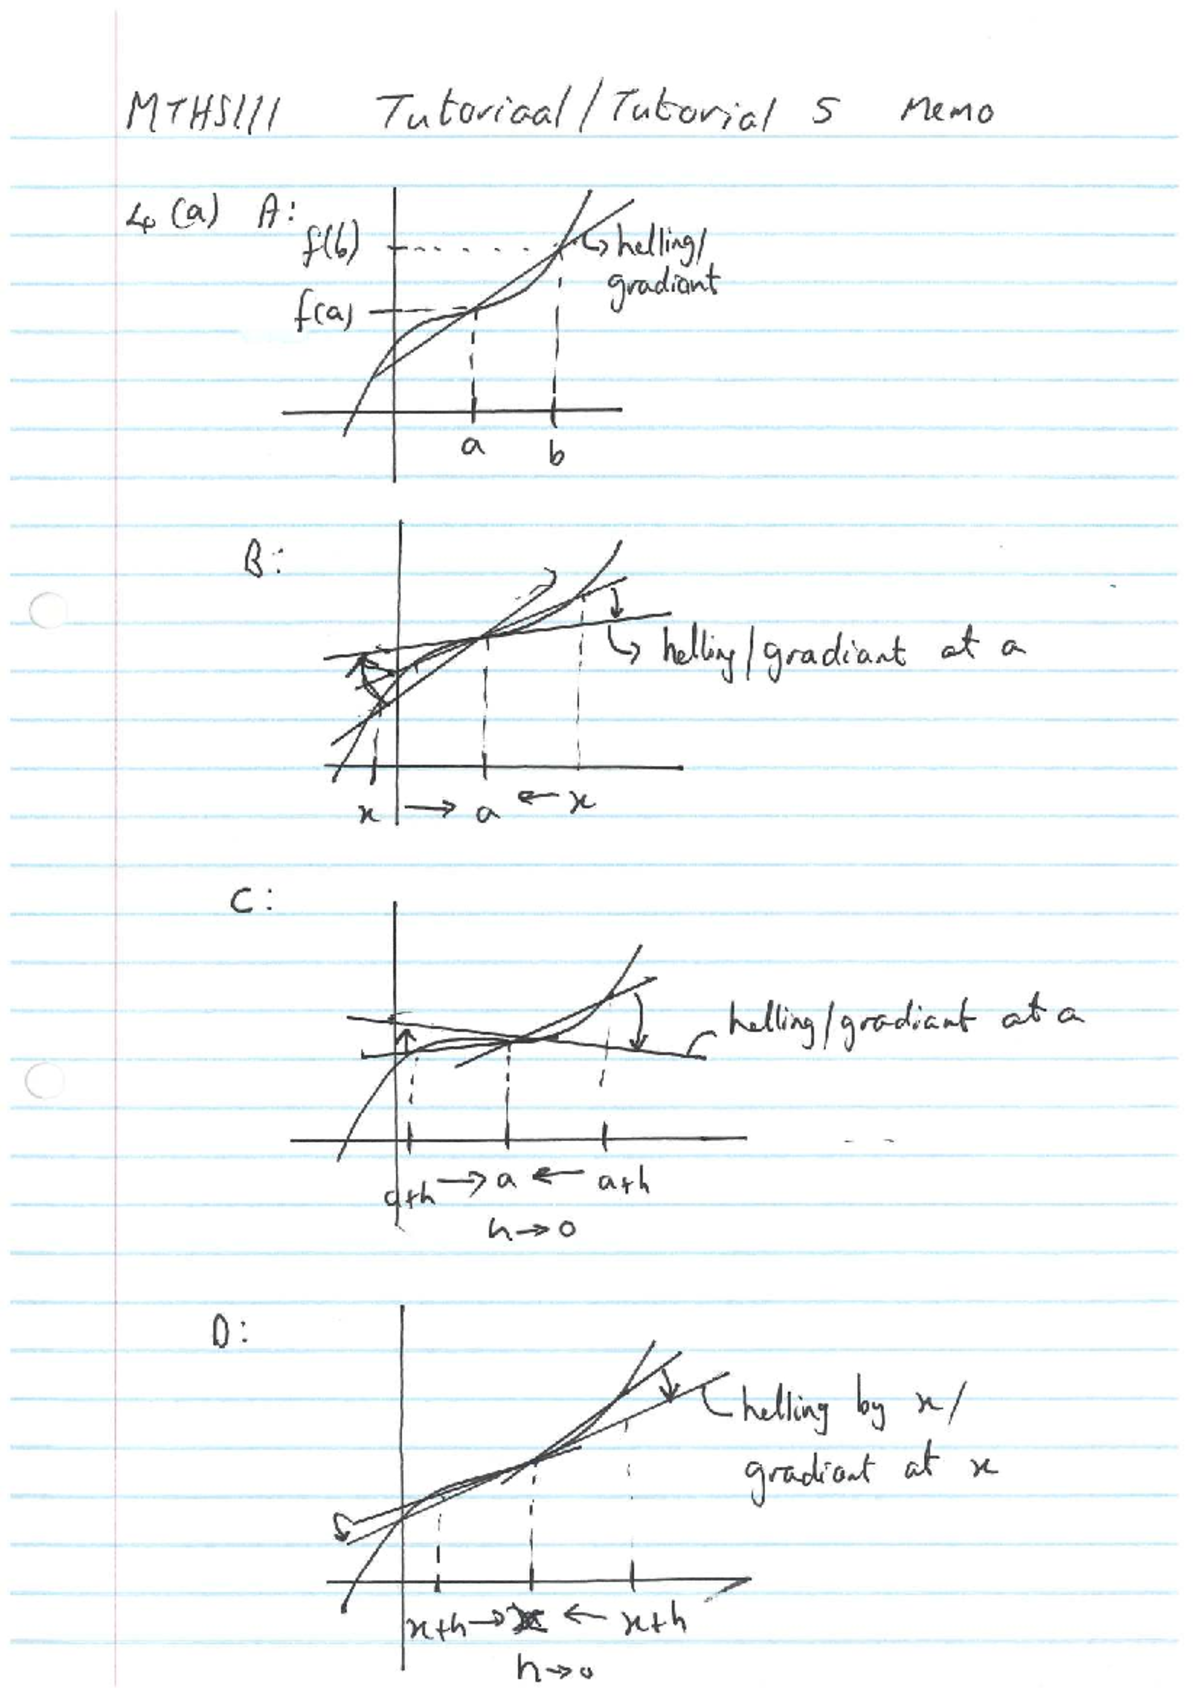 MTHS111 Tutoriaal/Tutorial 5 Memo
4 (a) A:
f(b)
helling/
gradiant
f(a)
a b
B:
helling/gradiant at a
x → a ← x
C:
helling/gradiant at a
a+h → a ← a+h
h→0
D:
helling by x/
gradiant at x
x+h → x ← x+h
h→0